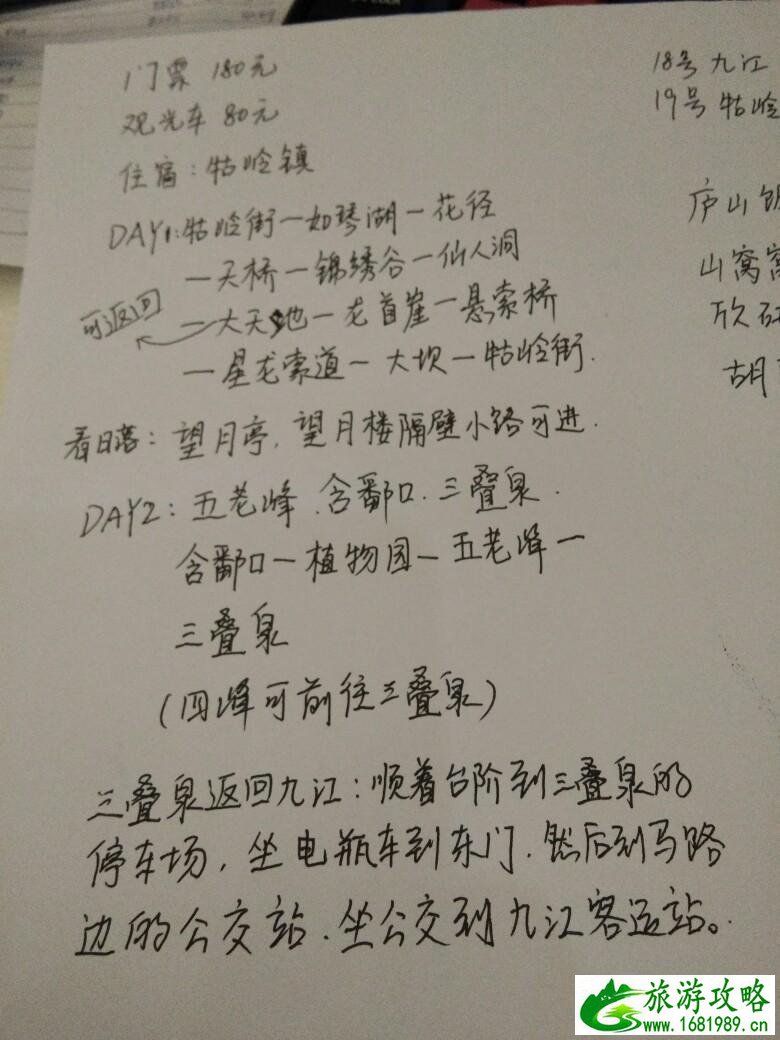 门票 180元
观光车 80元
住宿：牯岭镇
DAY1:牯岭街一如琴湖一花径
一天桥一锦绣谷一仙人洞
可返回
一大天池一龙首崖一悬索桥
一星龙索道一大坝一牯岭街.
看日落：望月亭,望月楼隔壁小路可进.
DAY2：五老峰.含鄱口.三叠泉.
含鄱口一植物园一五老峰一
三叠泉
(四峰可前往三叠泉)
三叠泉返回九江：顺着台阶到三叠泉的
停车场，坐电瓶车到东门.然后到马路
边的公交站.坐公交到九江客运站。
18号九江
19号牯岭
庐山
山窝窝
欣
胡
旅游攻略
www.1681989.cn